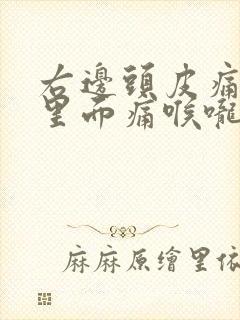 右邊頭皮痛
里而痛喉嚨
麻麻原繪里依